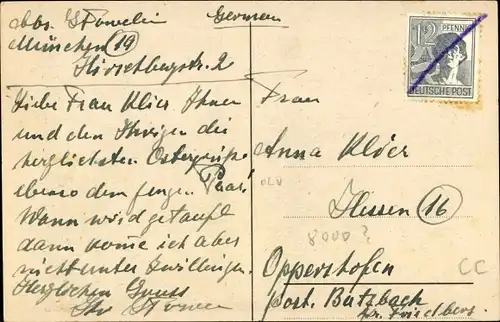 Abs. G.
Germany
München (19)
Hirschbergstr. 2
12 PFENNIG
DEUTSCHE POST
Liebe Frau Klier Ihnen
und den Ihrigen die
herzlichsten Ostergrüße
ebenso dem jungen Paar!
Wann wird getauft
dann komme ich aber
nicht unter Zwillingen.
Herzlichen Gruss
Ihr
Frau
Anna Klier
Hessen (16)
8000?
CC
Oppershofen
post. Butzbach
Kr. Friedberg